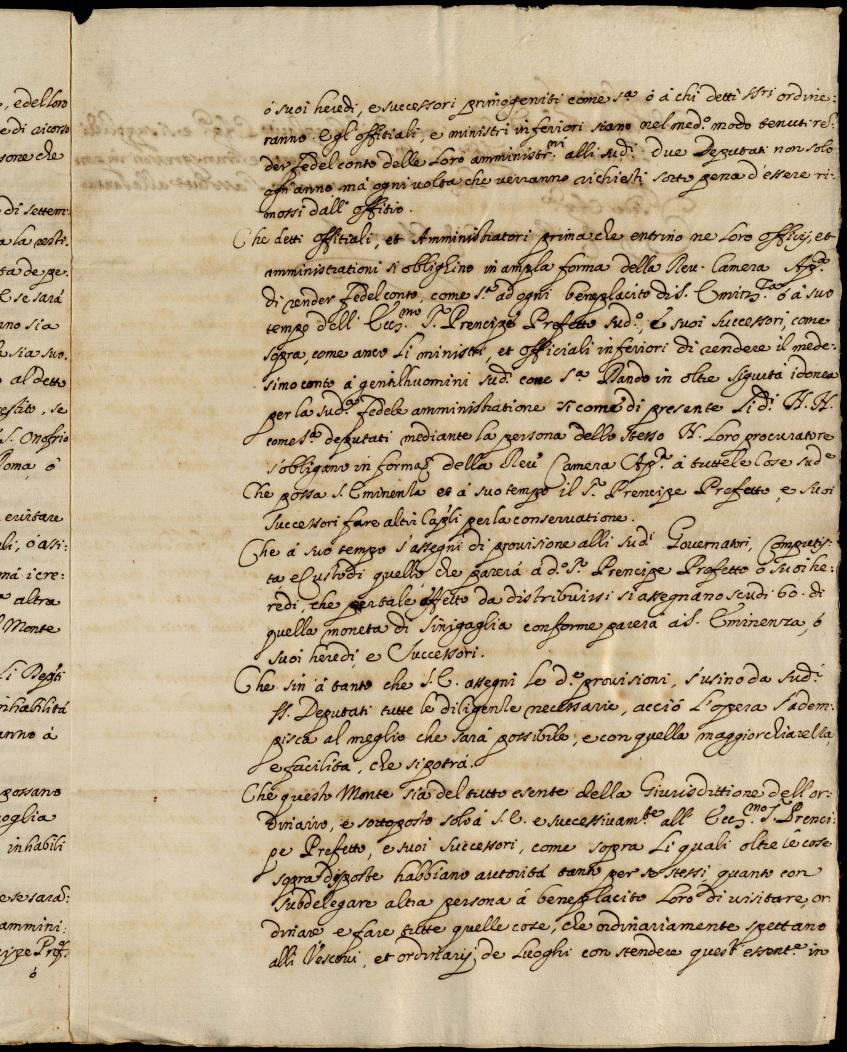 , e del loro
e di ricorso
sone che
di settem:
a la resti.
ta de pe.
E se sará
nno sia
sia suo.
o al detto
restito, se
S. Onofrio
Roma, ó
evitare
ali, ó asti:
má i cre:
altra
l Monte
Li Regti
nhabilitá
anno á
possano
voglia
inhabili
e se sará:
ammini:
cipe Prof.º
ó
ó suoi heredi, e successori primogeniti come s.ª ó á chi detti ssri ordine:
ranno. E gl'offitiali, e ministri inferiori siano nel med.º modo tenuti ré:
der fedel conto delle Loro amministr.ni alli sud.i due Deputati non solo
ogn'anno má ogni volta che verranno richiesti sotto pena d'essere ri:
mossi dall'offitio.
Che detti offitiali, et Amministratori prima che entrino ne Loro officij, et
amministrationi si oblighino in ampla forma della Reu. Camera Ap.ca
di render fedel conto, come s.ª ad ogni beneplacito di S. Eminz.za ó á suo
tempo dell'Ecc.mo S.r Prencipe Prefetto sud.º, e suoi successori, come
sopra, come anco Li ministri, et officiali inferiori di rendere il mede:
simo conto á gentilhuomini sud.i come s.ª Dando in oltre sigurtá idonea
per la sud.ª fedele amministratione si come di presente Li d.i H.H.
come s.ª deputati mediante la persona dello stesso H. Loro procuratore
s'obligano in forma della Reu. Camera Ap.ca á tutte le cose sud.e
Che possa S. Eminenza et á suo tempo il S.r Prencipe Prefetto, e suoi
successori fare altri Cap̃li per la conservatione.
Che á suo tempo s'assegni di provisione alli sud.i Governatori, Computis:
ta e Custodi quello che parerá á d.º S.r Prencipe Prefetto ó suoi he:
redi, che per tale effetto da distribuirsi si assegnano scudi 60. di
quella moneta di Sinigaglia conforme parerá á S. Eminenza, ó
suoi heredi, e Successori.
Che sin á tanto che S.E. assegni Le d.e provisioni, s'usino da sud.i
SS. Deputati tutte le diligenze necessarie, acció L'opera s'adem:
pisca al meglio che sará possibile, e con quella maggior chiarezza,
e facilita, che si potrá.
Che questo Monte sia del tutto esente della Giurisdittione dell'or:
dinario, e sottoposto solo á S.E. e successivam.te all'Ecc.mo S.r Prenci:
pe Prefetto, e suoi successori, come sopra Li quali oltre le cose
sopra disposte habbiano autoritá tanto per se stessi, quanto con
subdelegare altra persona á beneplacito Loro di visitare, or:
dinare e fare tutte quelle cose, che ordinariamente spettano
alli Vescovi, et ordinarij de Luoghi con stendere quest'essent.e in